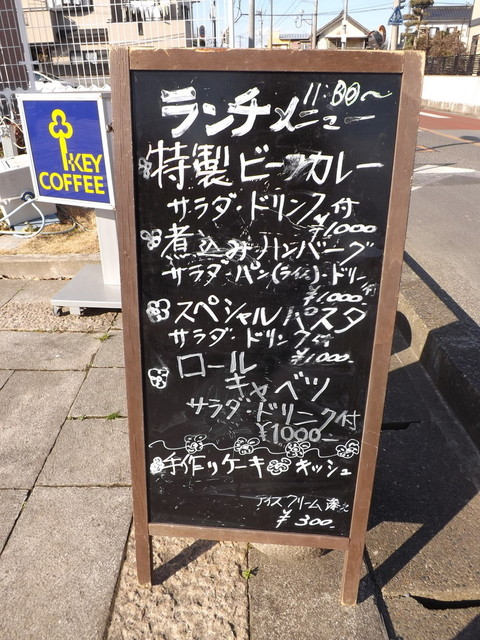 KEY
COFFEE
11:30～
ランチメニュー
特製ビーフカレー
サラダ・ドリンク付
¥1000
煮込みハンバーグ
サラダ・パン(ライス)・ドリンク付
¥1000-
スペシャルパスタ
サラダ・ドリンク付
¥1000-
ロール
キャベツ
サラダ・ドリンク付
¥1000-
手作りケーキ キッシュ
アイスクリーム
¥300-